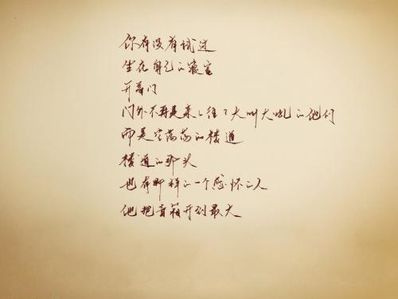 你有没有试过
坐在自己的寝室
开着门
门外不再是来来往往大叫大吼的他们
而是空荡荡的楼道
楼道的那头
也有那样的一个感怀之人
他把音箱开到最大